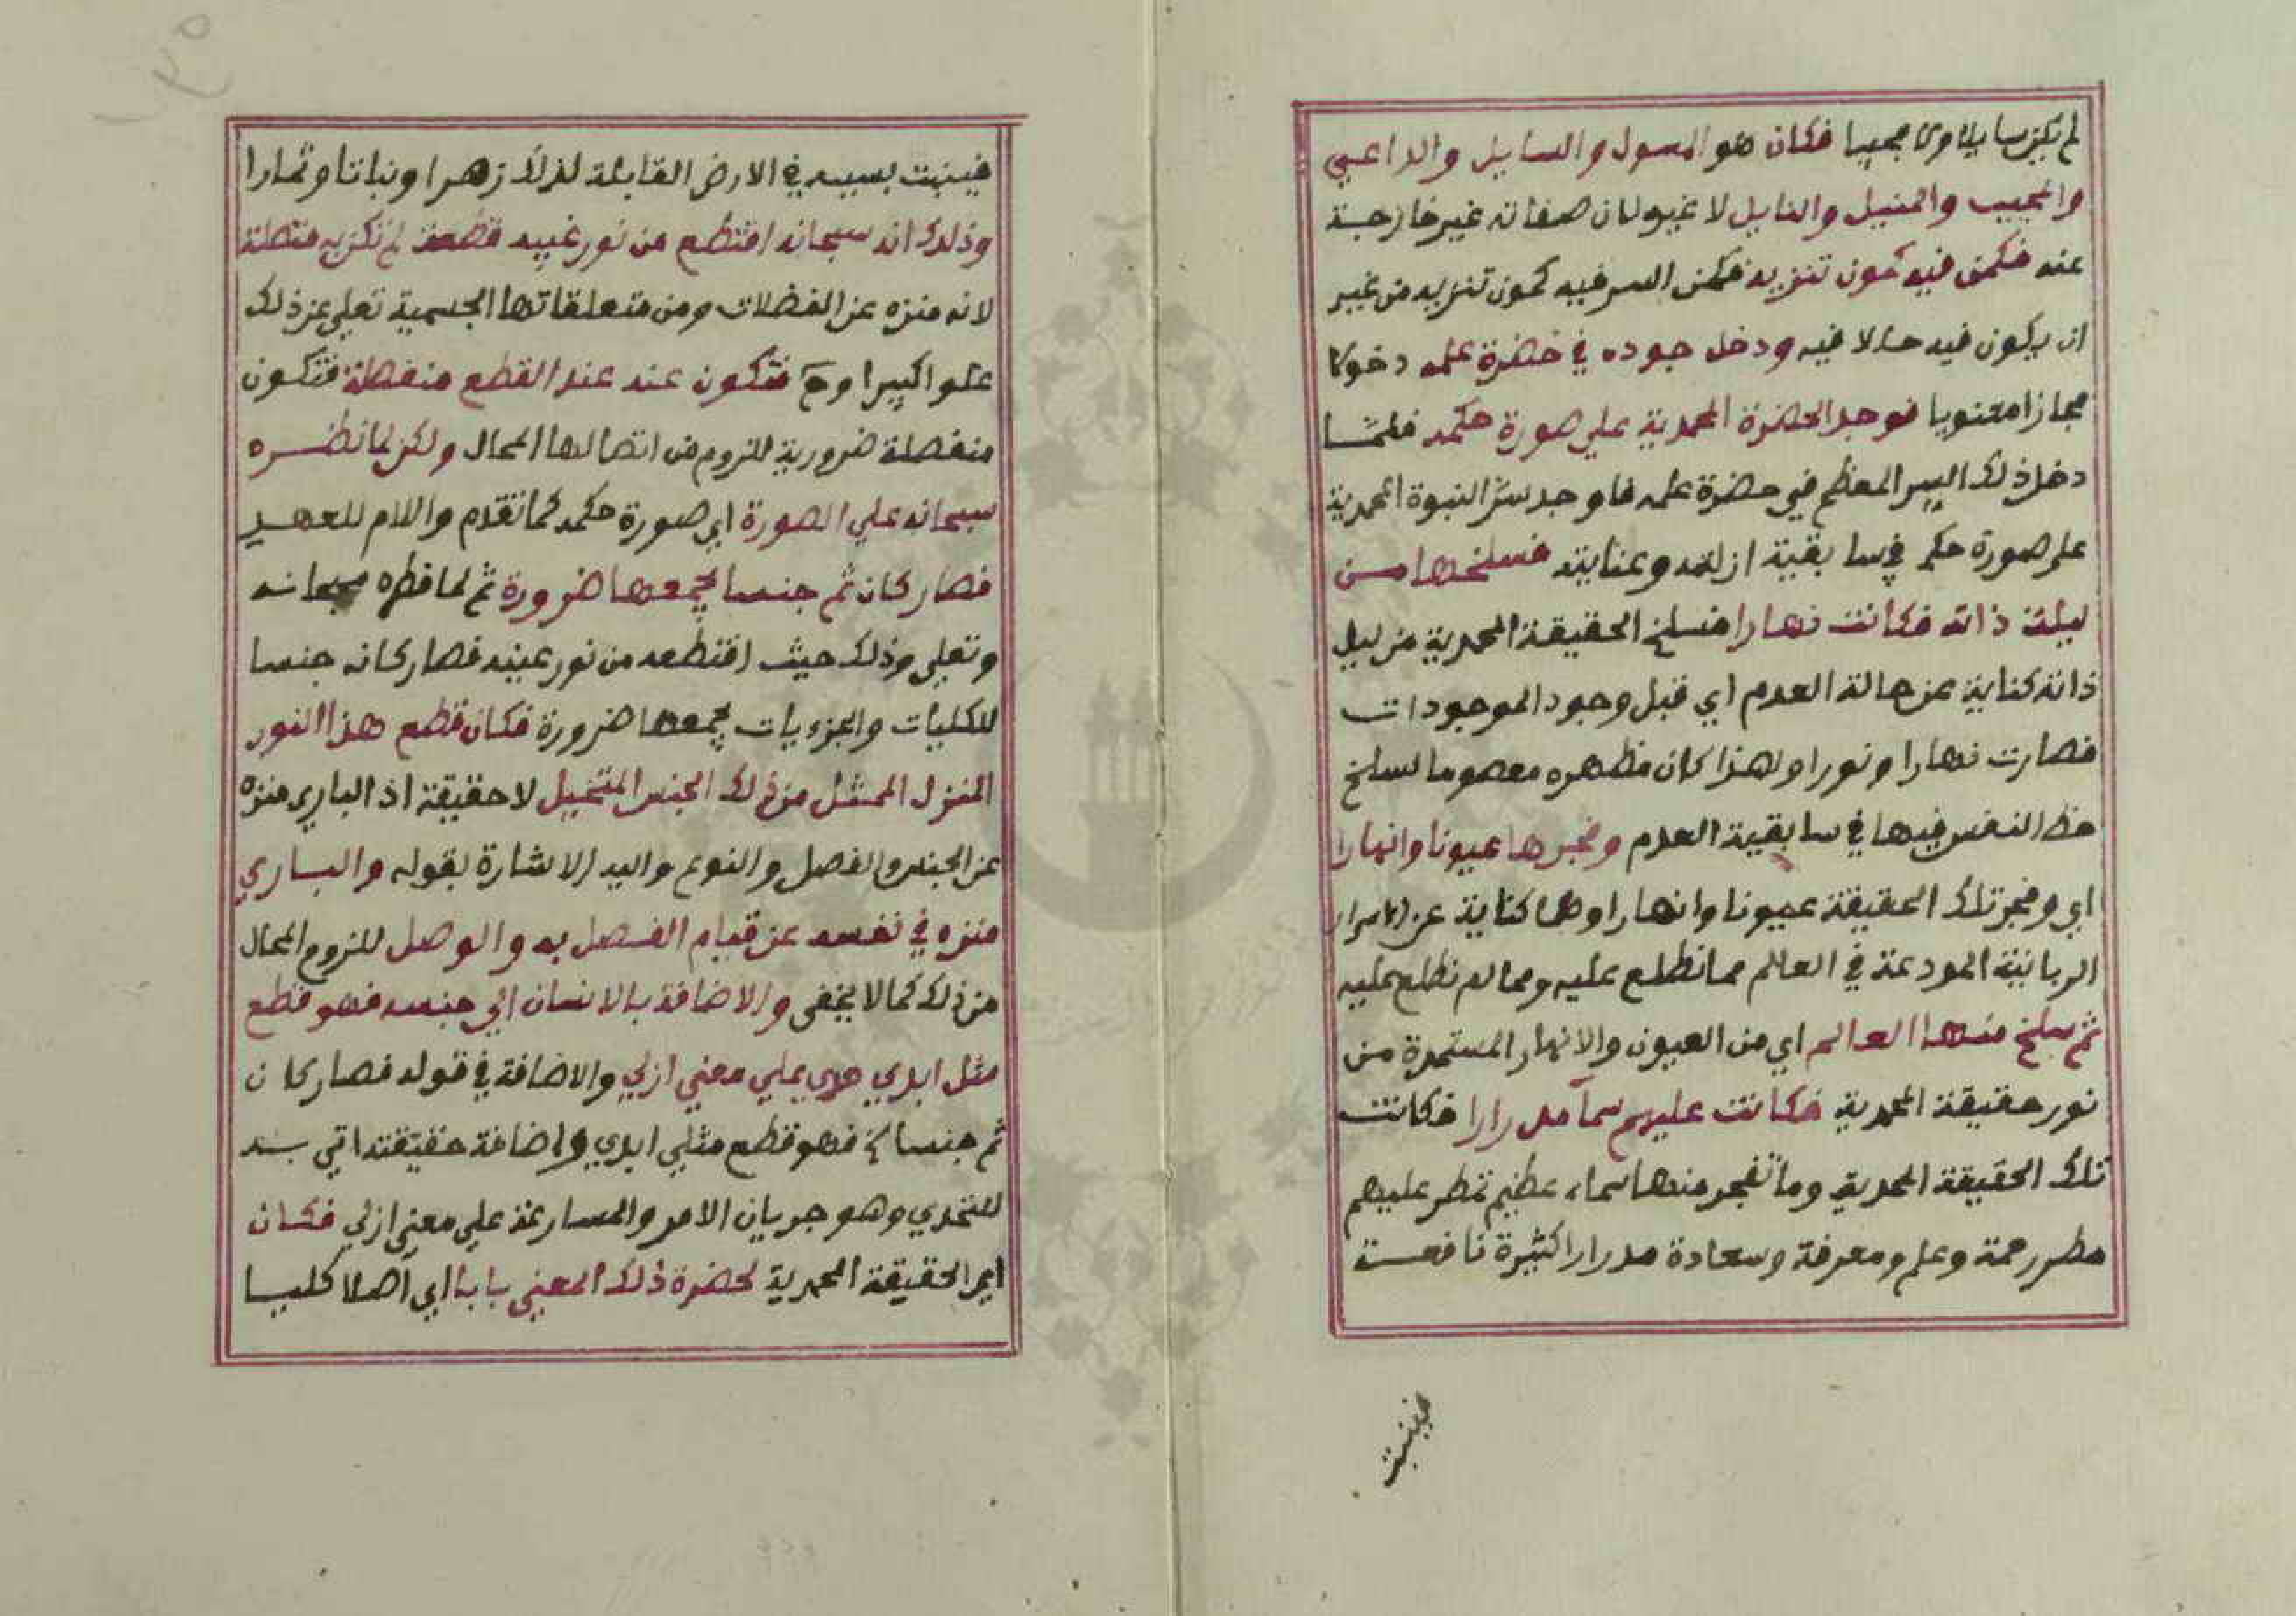 لم يكن سايلا ولا مجيبا فكان هو المسول والسايل والداعي
والمجيب والمنيل والنايل لا غير لان صفاته غير خارجة
عنه فكمن فيه كمون تنزيه فكمن السر فيه كمون تنزيه من غير
ان يكون فيه حالا فيه ودخل جوده في حضرة علمه دخولا
مجازا معنويا فوجد الحضرة المحمدية علي صورة حكمه فلما
دخل ذلك السر المعظم في حضرة علمه فاوجد سر النبوة المحمدية
علي صورة حكم في سابقية ازليته وعنايته فسلخها من
ليلة ذاته فكانت نهارا فنسلخ الحقيقة المحمدية من ليل
ذاته كناية عن حالة العدم اي قبل وجود الموجودات
فصارت نهارا ونورا ولهذا كان مظهره معصوما لسلخ
حظ النفس فيها في سابقية العدم وفجرها عيونا وانهارا
اي وفجر تلك الحقيقة عيونا وانهارا وهما كناية عن الاسرار
الربانية المودعة في العالم مما نطلع عليه ومما لم نطلع عليه
ثم سلخ منها العالم اي من العيون والانهار المستمدة من
نور حقيقة المحمدية فكانت عليهم سمآ مدرارا فكانت
تلك الحقيقة المحمدية وما تفجر منها سماء عظيم تمطر عليهم
مطر رحمة وعلم ومعرفة وسعادة مدرارا كثيرة نافعة
فينبت
فينبت بسببه في الارض القابلة لذلك زهرا ونباتا وثمارا
وذلك انه سبحانه اقتطع من نور غيبه قطعة لم تكن به متصلة
لانه منزه عن الفضلات ومن متعلقاتها الجسمية تعلي عن ذلك
علوا كبيرا وح فتكون عنه عند القطع منفصلة فتكون
منفصلة ضرورية للزوم من اتصالها المحال ولكن لما نطره
سبحانه علي الصورة اي صورة حكمه كما تقدم واللام للعهد
فصار كان ثم جنسا يجمعها ضرورة ثم لما فطره سبحانه
وتعلي وذلك حيث اقتطعه من نور غيبه فصار كانه جنسا
للكليات والجزءيات يجمعها ضرورة فكان قطع هذا النور
المنزل الممثل من ذلك الجنس المتخيل لا حقيقة اذ الباري منزه
عن الجنس والفصل والنوع واليه الاشارة بقوله والباري
منزه في نفسه عن قيام الفصل به والوصل للزوم المحال
من ذلك كما لا يخفي والاضافة بالانسان الي جنسه فهو قطع
مثل ابدي هدي علي معني ازلي والاضافة في قوله فصار كان
ثم جنسا الخ فهو قطع مثلي ابدي واضافة حقيقته اتي به
للتحدي وهو جريان الامر والمسارعة علي معني ازلي فكان
اي الحقيقة المحمدية لحضرة ذلك المعني بابا اي اصلا كليا